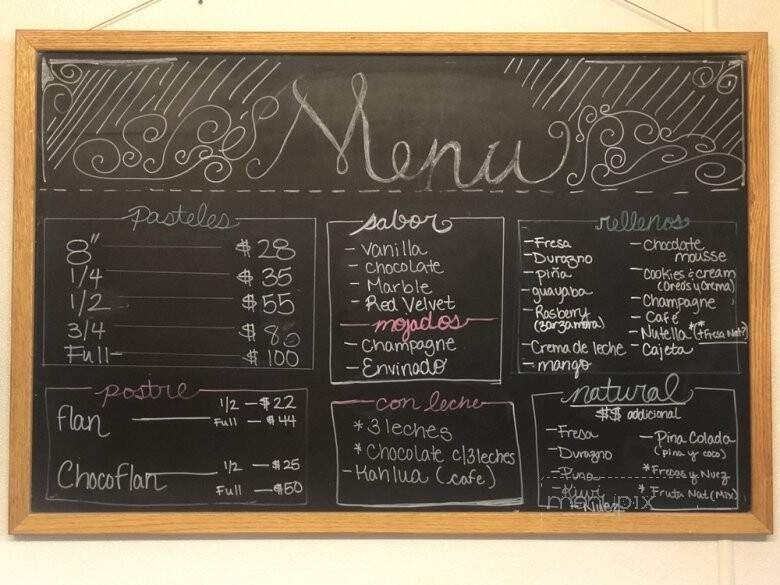 Menu
Pasteles
8" $28
1/4 $35
1/2 $55
3/4 $80
Full- $100
sabor
- Vanilla
- chocolate
- Marble
- Red Velvet
mojados
- champagne
- Envinado
rellenos
- Fresa
- Durazno
- piña
- guayaba
- Rasberry
(zarzamora)
- Crema de leche
- mango
- Chocolate
mousse
- Cookies & cream
(Oreos y Crema)
- Champagne
- Café
- Nutella** (+Fresa Nat?)
- Cajeta
postre
flan
1/2 - $22
Full - $44
Chocoflan
1/2 - $25
Full - $50
con leche
* 3 leches
* Chocolate c/3leches
- Kahlua (cafe)
natural
$$ addicional
- Fresa
- Durazno
- Piña
- Nuez
- Pina Colada
(piña y coco)
* Fresas y Nuez
* Fruta Nat (Mix)
menupix